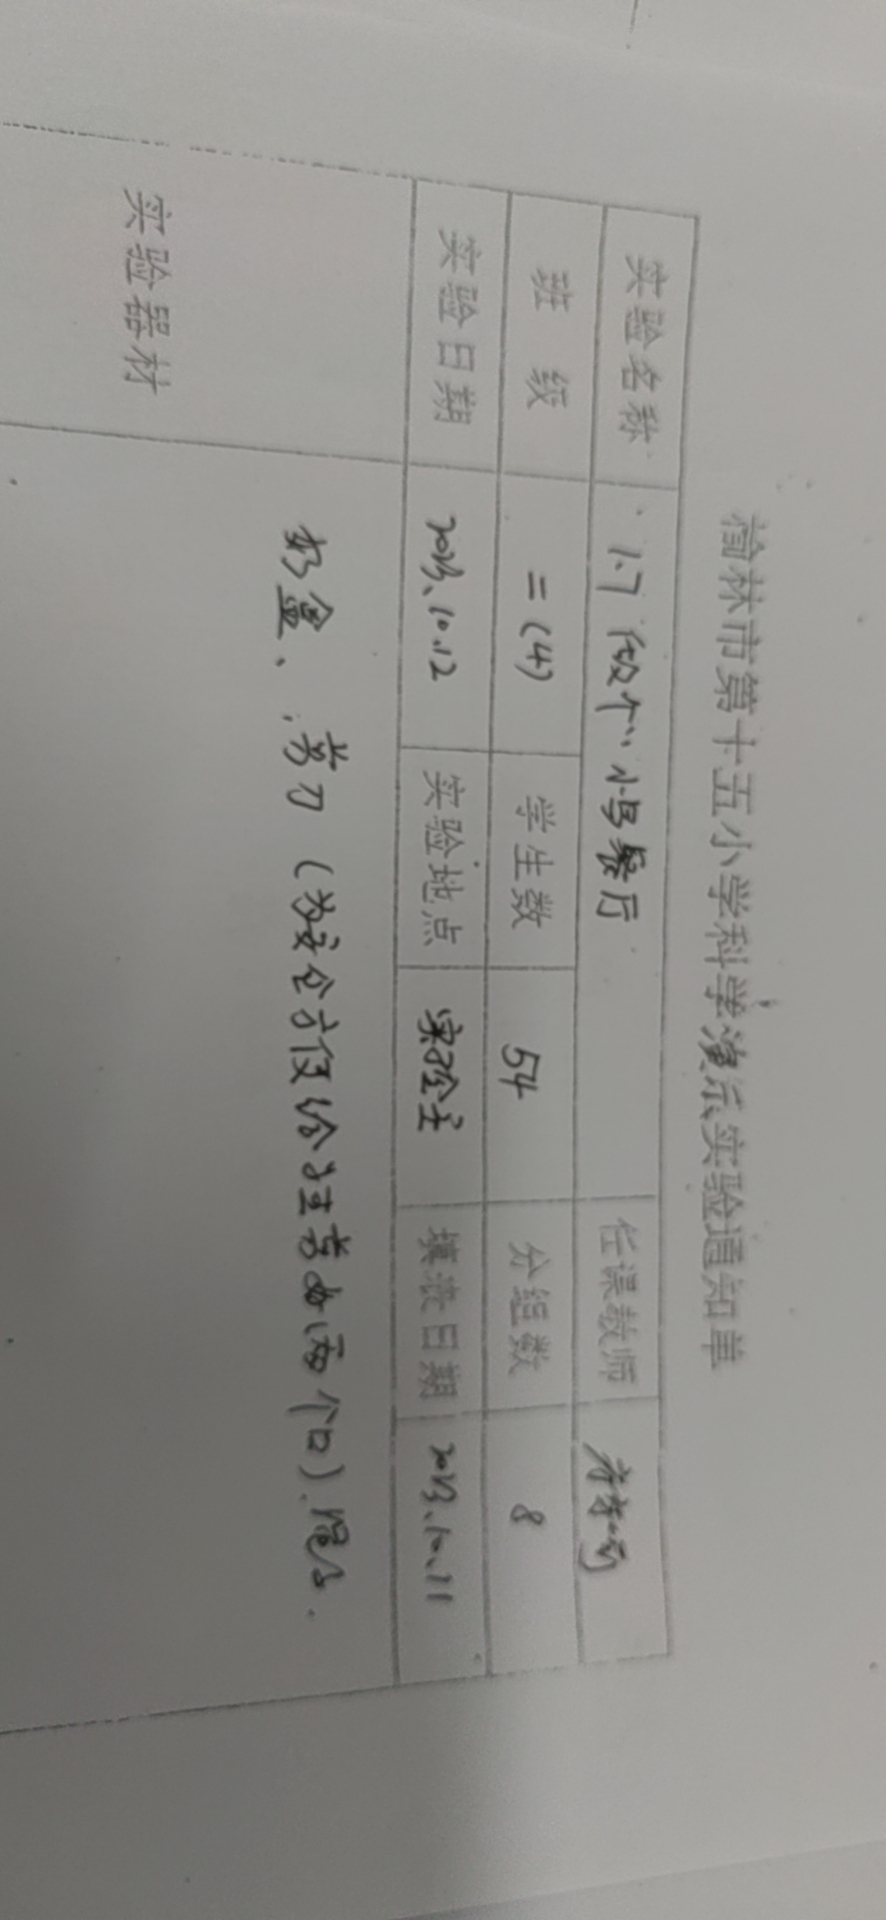 榆林市第十五小学科学演示实验通知单
实验名称 1.7 做个小鸟餐厅 任课教师
班 级 二(4) 学生数 54 分组数 8
实验日期 2023.10.12 实验地点 实验室 填表日期 2023.10.11
实验器材 奶盒、剪刀(为安全方便给学生剪两个口).绳子.